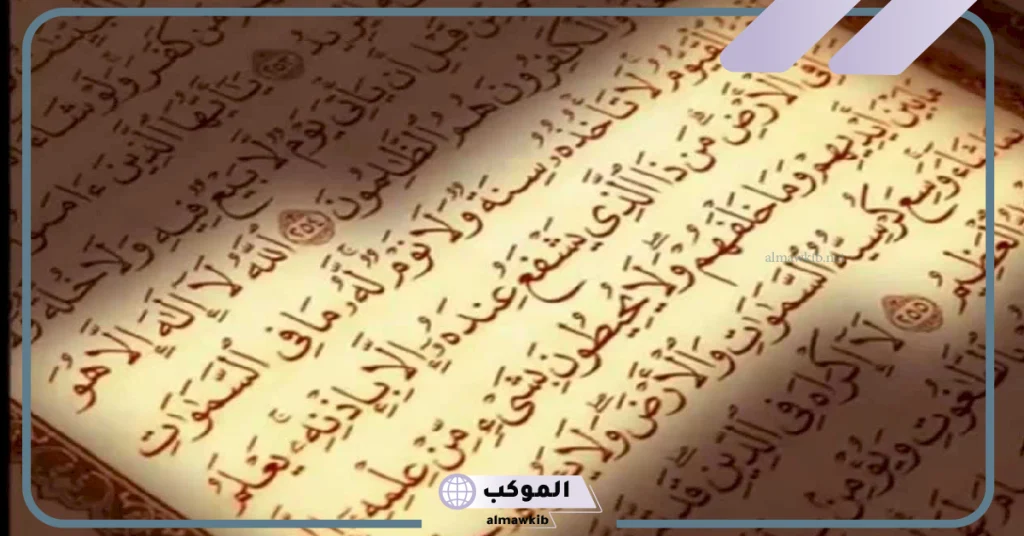 مِن كَفَرَ وَلَوْ شَاءَ
يَٰٓأَيُّهَا ٱلَّذِينَ ءَامَنُوٓا
مِّن قَبْلِ أَن يَأْتِىَ يَوْمٌ لَّا بَيْعٌ فِيهِ وَلَا خُلَّةٌ
وَٱلْكَٰفِرُونَ هُمُ ٱلظَّٰلِمُونَ ٢٥٤ ٱللَّهُ لَآ إِلَٰهَ إِلَّا هُوَ
ٱلْقَيُّومُ لَا تَأْخُذُهُۥ سِنَةٌ وَلَا نَوْمٌ لَّهُۥ مَا فِى ٱلسَّمَٰوَٰتِ
فِى ٱلْأَرْضِ مَن ذَا ٱلَّذِى يَشْفَعُ عِندَهُۥٓ إِلَّا بِإِذْنِهِۦ يَعْلَمُ
مَا بَيْنَ أَيْدِيهِمْ وَمَا خَلْفَهُمْ وَلَا يُحِيطُونَ بِشَىْءٍ مِّنْ عِلْمِهِۦٓ
شَآءَ وَسِعَ كُرْسِيُّهُ ٱلسَّمَٰوَٰتِ وَٱلْأَرْضَ وَلَا
ٱلْعَظِيمُ ٢٥٥ لَآ إِكْرَاهَ فِى ٱلدِّينِ قَد
بِٱلطَّٰغُوتِ وَيُؤْمِنۢ
الموكب
almawkib